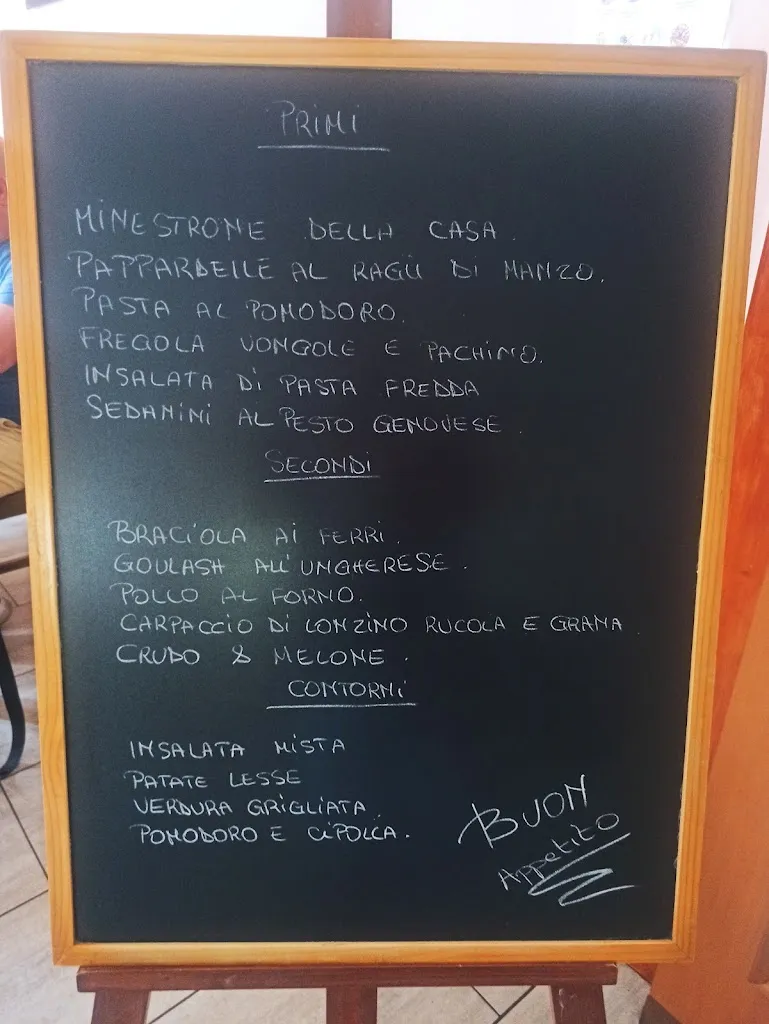 PRIMI
MINESTRONE DELLA CASA.
PAPPARDELLE AL RAGÙ DI MANZO.
PASTA AL POMODORO.
FREGOLA VONGOLE E PACHINO.
INSALATA DI PASTA FREDDA
SEDANINI AL PESTO GENOVESE.
SECONDI
BRACIOLA AI FERRI.
GOULASH ALL'UNGHERESE.
POLLO AL FORNO.
CARPACCIO DI LONZINO RUCOLA E GRANA
CRUDO & MELONE.
CONTORNI
INSALATA MISTA
PATATE LESSE
VERDURA GRIGLIATA
POMODORO E CIPOLLA.
BUON
Appetito